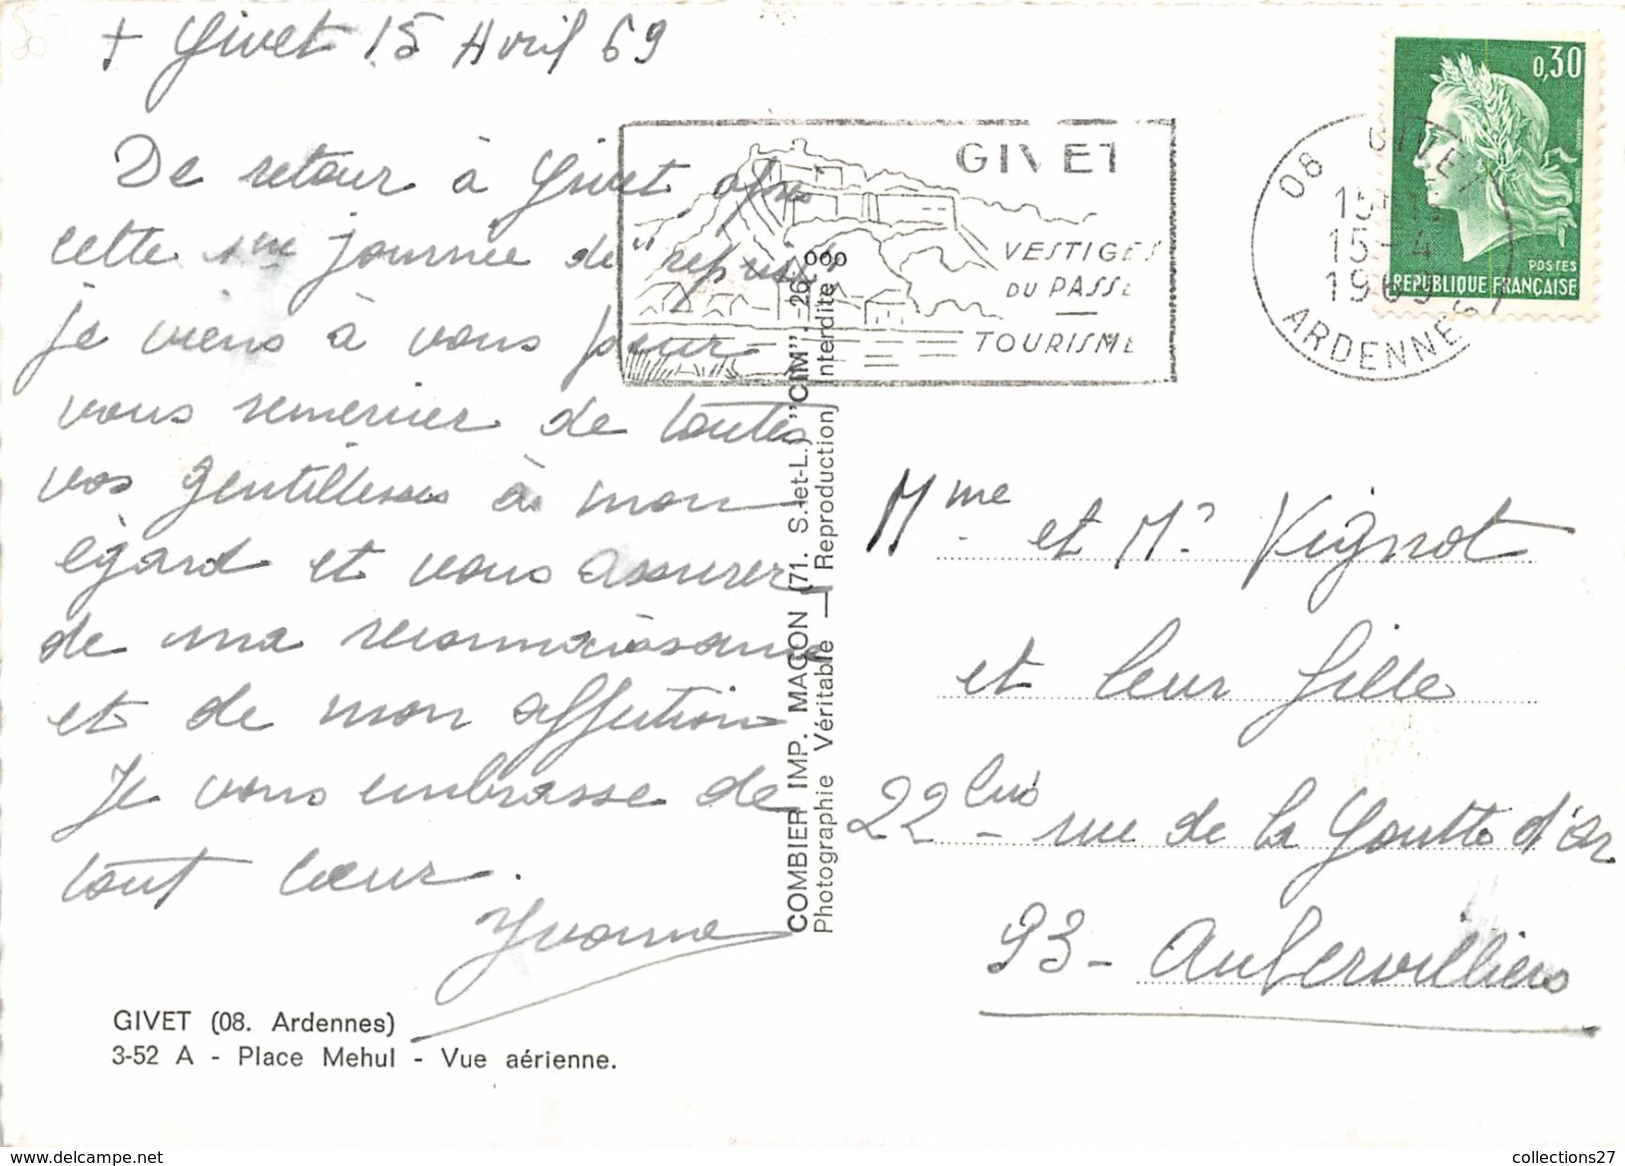 + Givet 15 Avril 69
De retour à Givet après
cette 1ère journée de "reprise"
je viens à vous pour
vous remercier de toutes
vos gentillesses à mon
égard et vous assurer
de ma reconnaissance
et de mon affection
Je vous embrasse de
tout cœur.
Yvonne
GIVET (08. Ardennes)
3-52 A - Place Mehul - Vue aérienne.
COMBIER IMP. MACON (71. S.-et-L.) "CIM"
Photographie Véritable — Reproduction Interdite
GIVET
VESTIGES
DU PASSÉ
TOURISME
08 GIVET
15-4
1969
ARDENNES
0,30
POSTES
REPUBLIQUE FRANÇAISE
Mme et Mr Vignot
et leur fille
22 bis rue de la Goutte d'or
93 - Aubervilliers
collections27